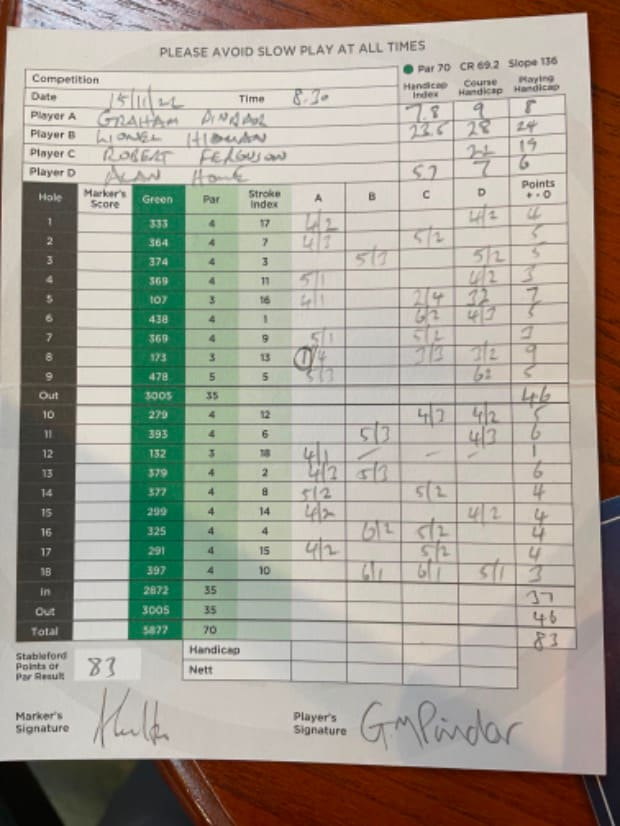 PLEASE AVOID SLOW PLAY AT ALL TIMES
Par 70 CR 69.2 Slope 136
Competition Handicap Index Course Handicap Playing Handicap
Date 15/11/22 Time 8.30
Player A GRAHAM PINDAR 7.8 9 8
Player B LIONEL 23.5 28 24
Player C ROBERT FERGUSON 22 19
Player D ALAN 5.7 7 6
Hole Marker's Score Green Par Stroke Index A B C D Points + - 0
1 333 4 17 4/2 4/2 4
2 364 4 7 4/3 5/2 5
3 374 4 3 5/3 5/2 5
4 369 4 11 5/1 4/2 3
5 107 3 16 4/1 2/4 32 7
6 438 4 1 6/2 4/3 5
7 369 4 9 5/1 5/2 3
8 173 3 13 1/4 3/3 3/2 9
9 478 5 5 5/3 62 5
Out 3005 35 46
10 279 4 12 4/3 4/2 5
11 393 4 6 5/3 4/3 6
12 132 3 18 4/1 – – – 1
13 379 4 2 4/3 5/3 6
14 377 4 8 5/2 5/2 4
15 299 4 14 4/2 4/2 4
16 325 4 4 6/2 5/2 4
17 291 4 15 4/2 5/2 4
18 397 4 10 6/1 6/1 5/1 3
In 2872 35 37
Out 3005 35 46
Total 5877 70 83
Stableford Points or Par Result 83 Handicap
Nett
Marker's Signature
Player's Signature GMPindar